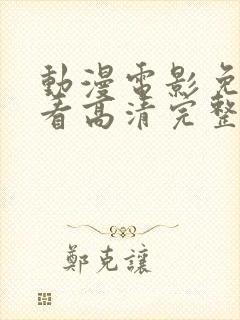 動漫電影免
看高清完整
鄭克讓